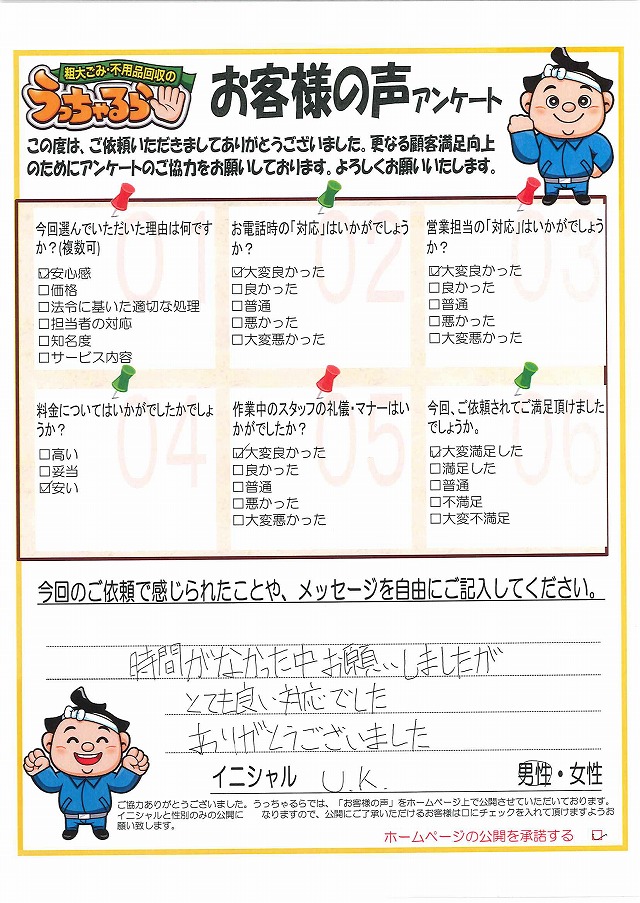 粗大ごみ・不用品回収の
うっちゃるら
お客様の声アンケート
この度は、ご依頼いただきましてありがとうございました。更なる顧客満足向上
のためにアンケートのご協力をお願いしております。よろしくお願いいたします。
01
今回選んでいただいた理由は何です
か?(複数可)
☑安心感
□価格
□法令に基いた適切な処理
□担当者の対応
□知名度
□サービス内容
02
お電話時の「対応」はいかがでしょう
か?
☑大変良かった
□良かった
□普通
□悪かった
□大変悪かった
03
営業担当の「対応」はいかがでしょう
か?
☑大変良かった
□良かった
□普通
□悪かった
□大変悪かった
04
料金についてはいかがでしたかでしょ
うか?
□高い
□妥当
☑安い
05
作業中のスタッフの礼儀・マナーはい
かがでしたか?
☑大変良かった
□良かった
□普通
□悪かった
□大変悪かった
06
今回、ご依頼されてご満足頂けました
でしょうか。
☑大変満足した
□満足した
□普通
□不満足
□大変不満足
今回のご依頼で感じられたことや、メッセージを自由にご記入してください。
時間がなかった中お願いしましたが
とても良い対応でした
ありがとうございました
イニシャル U.K. 男性・女性
ご協力ありがとうございました。うっちゃるらでは、「お客様の声」をホームページ上で公開させていただいております。
イニシャルと性別のみの公開に なりますので、公開にご了承いただけるお客様は□にチェックを入れて頂けますようお
願い致します。
ホームページの公開を承諾する ☑